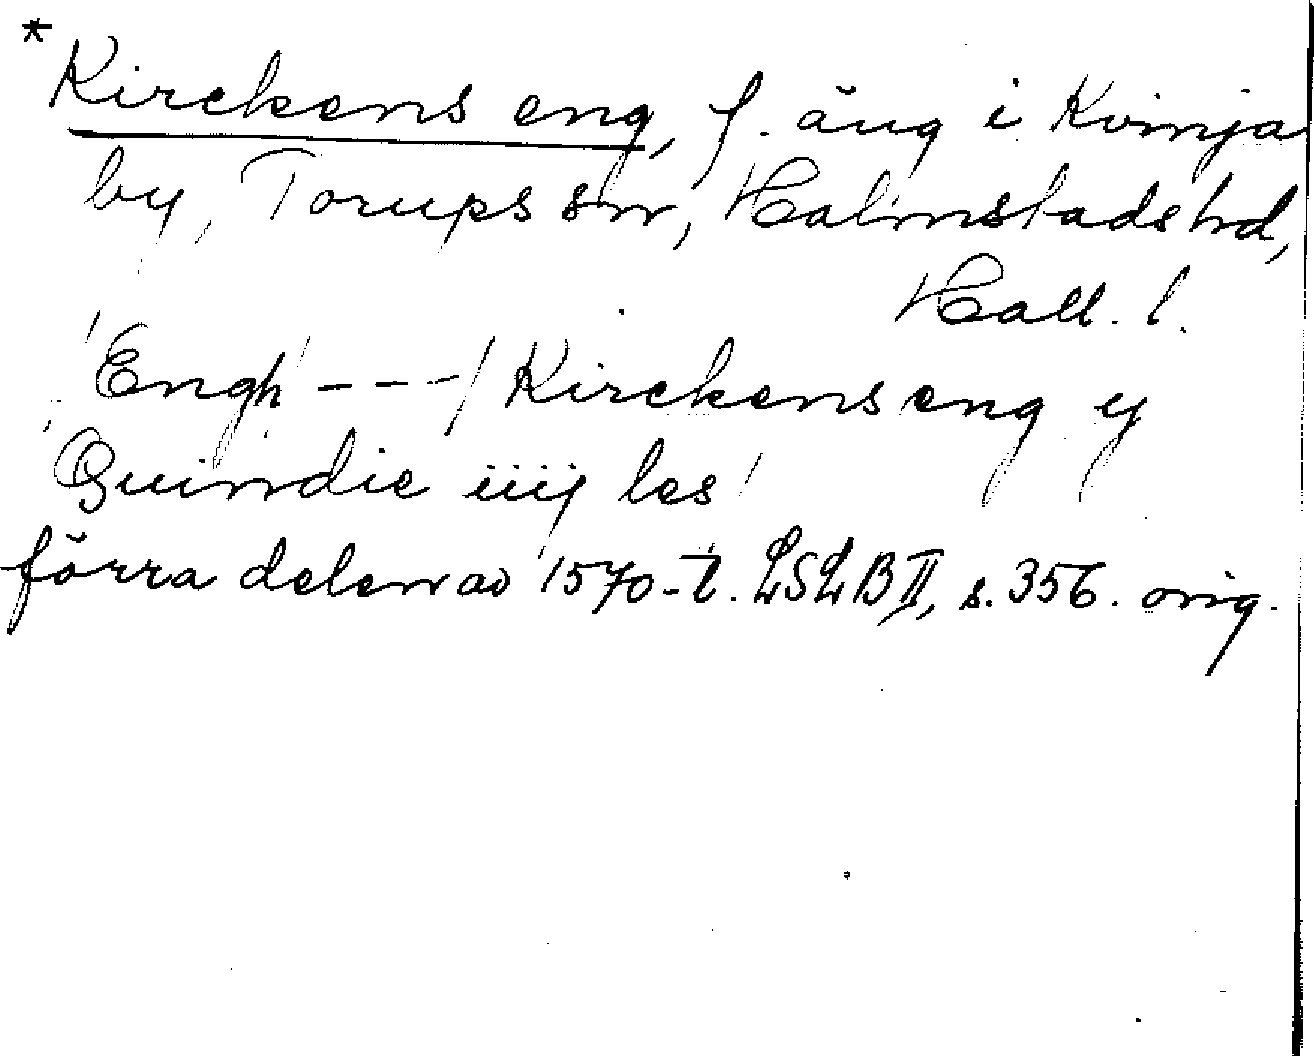 * Kirckens eng, f. äng i Kvinja
by, Torups sn, Halmstads hd,
Hall. l.
'Engh' --- / Kirckens eng y
Quindie iiij les'
förra delen av 1570-t. LSLB II, s. 356. orig.